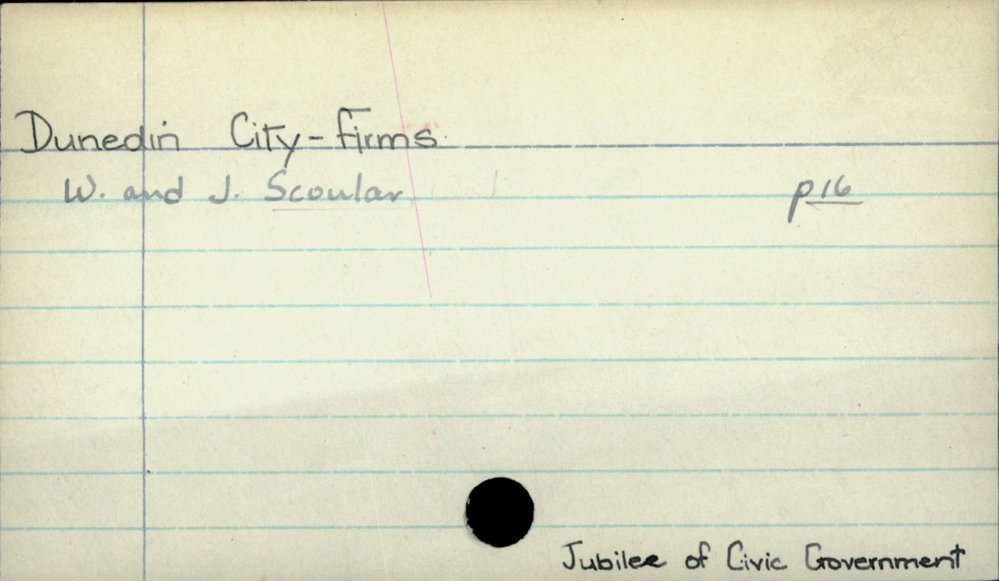 Dunedin City - Firms
W. and J. Scoular p16
Jubilee of Civic Government